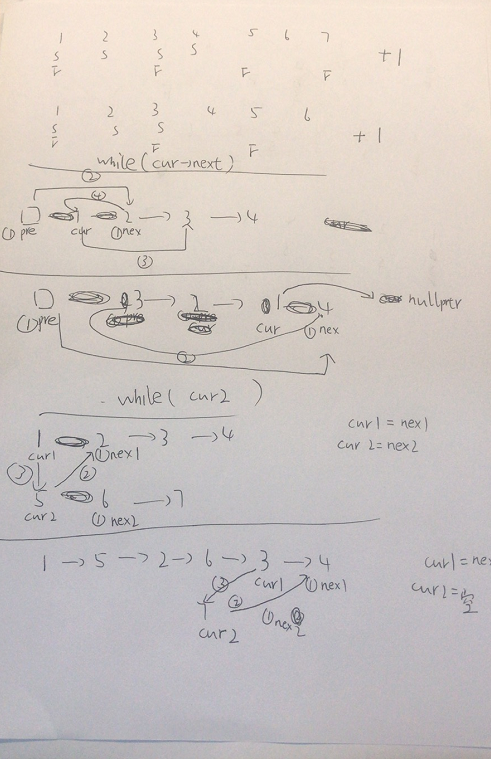 1 2 3 4 5 6 7
S S S S
F F F F
+1
1 2 3 4 5 6
S S S
F F F
+1
while(cur→next)
②
④
□ 1 2 → 3 → 4
①pre cur ①nex
③
□ 3 → 2 → 1 4 nullptr
①pre cur ①nex
②
while( cur2 )
1 2 → 3 → 4
cur1 ①nex1
cur1 = nex1
cur2 = nex2
③ ②
5 6 → 7
cur2 ①nex2
1 → 5 → 2 → 6 → 3 → 4
cur1 ①nex1
cur1 = nex
③ ②
7 ①nex2
cur2
cur2 = 空